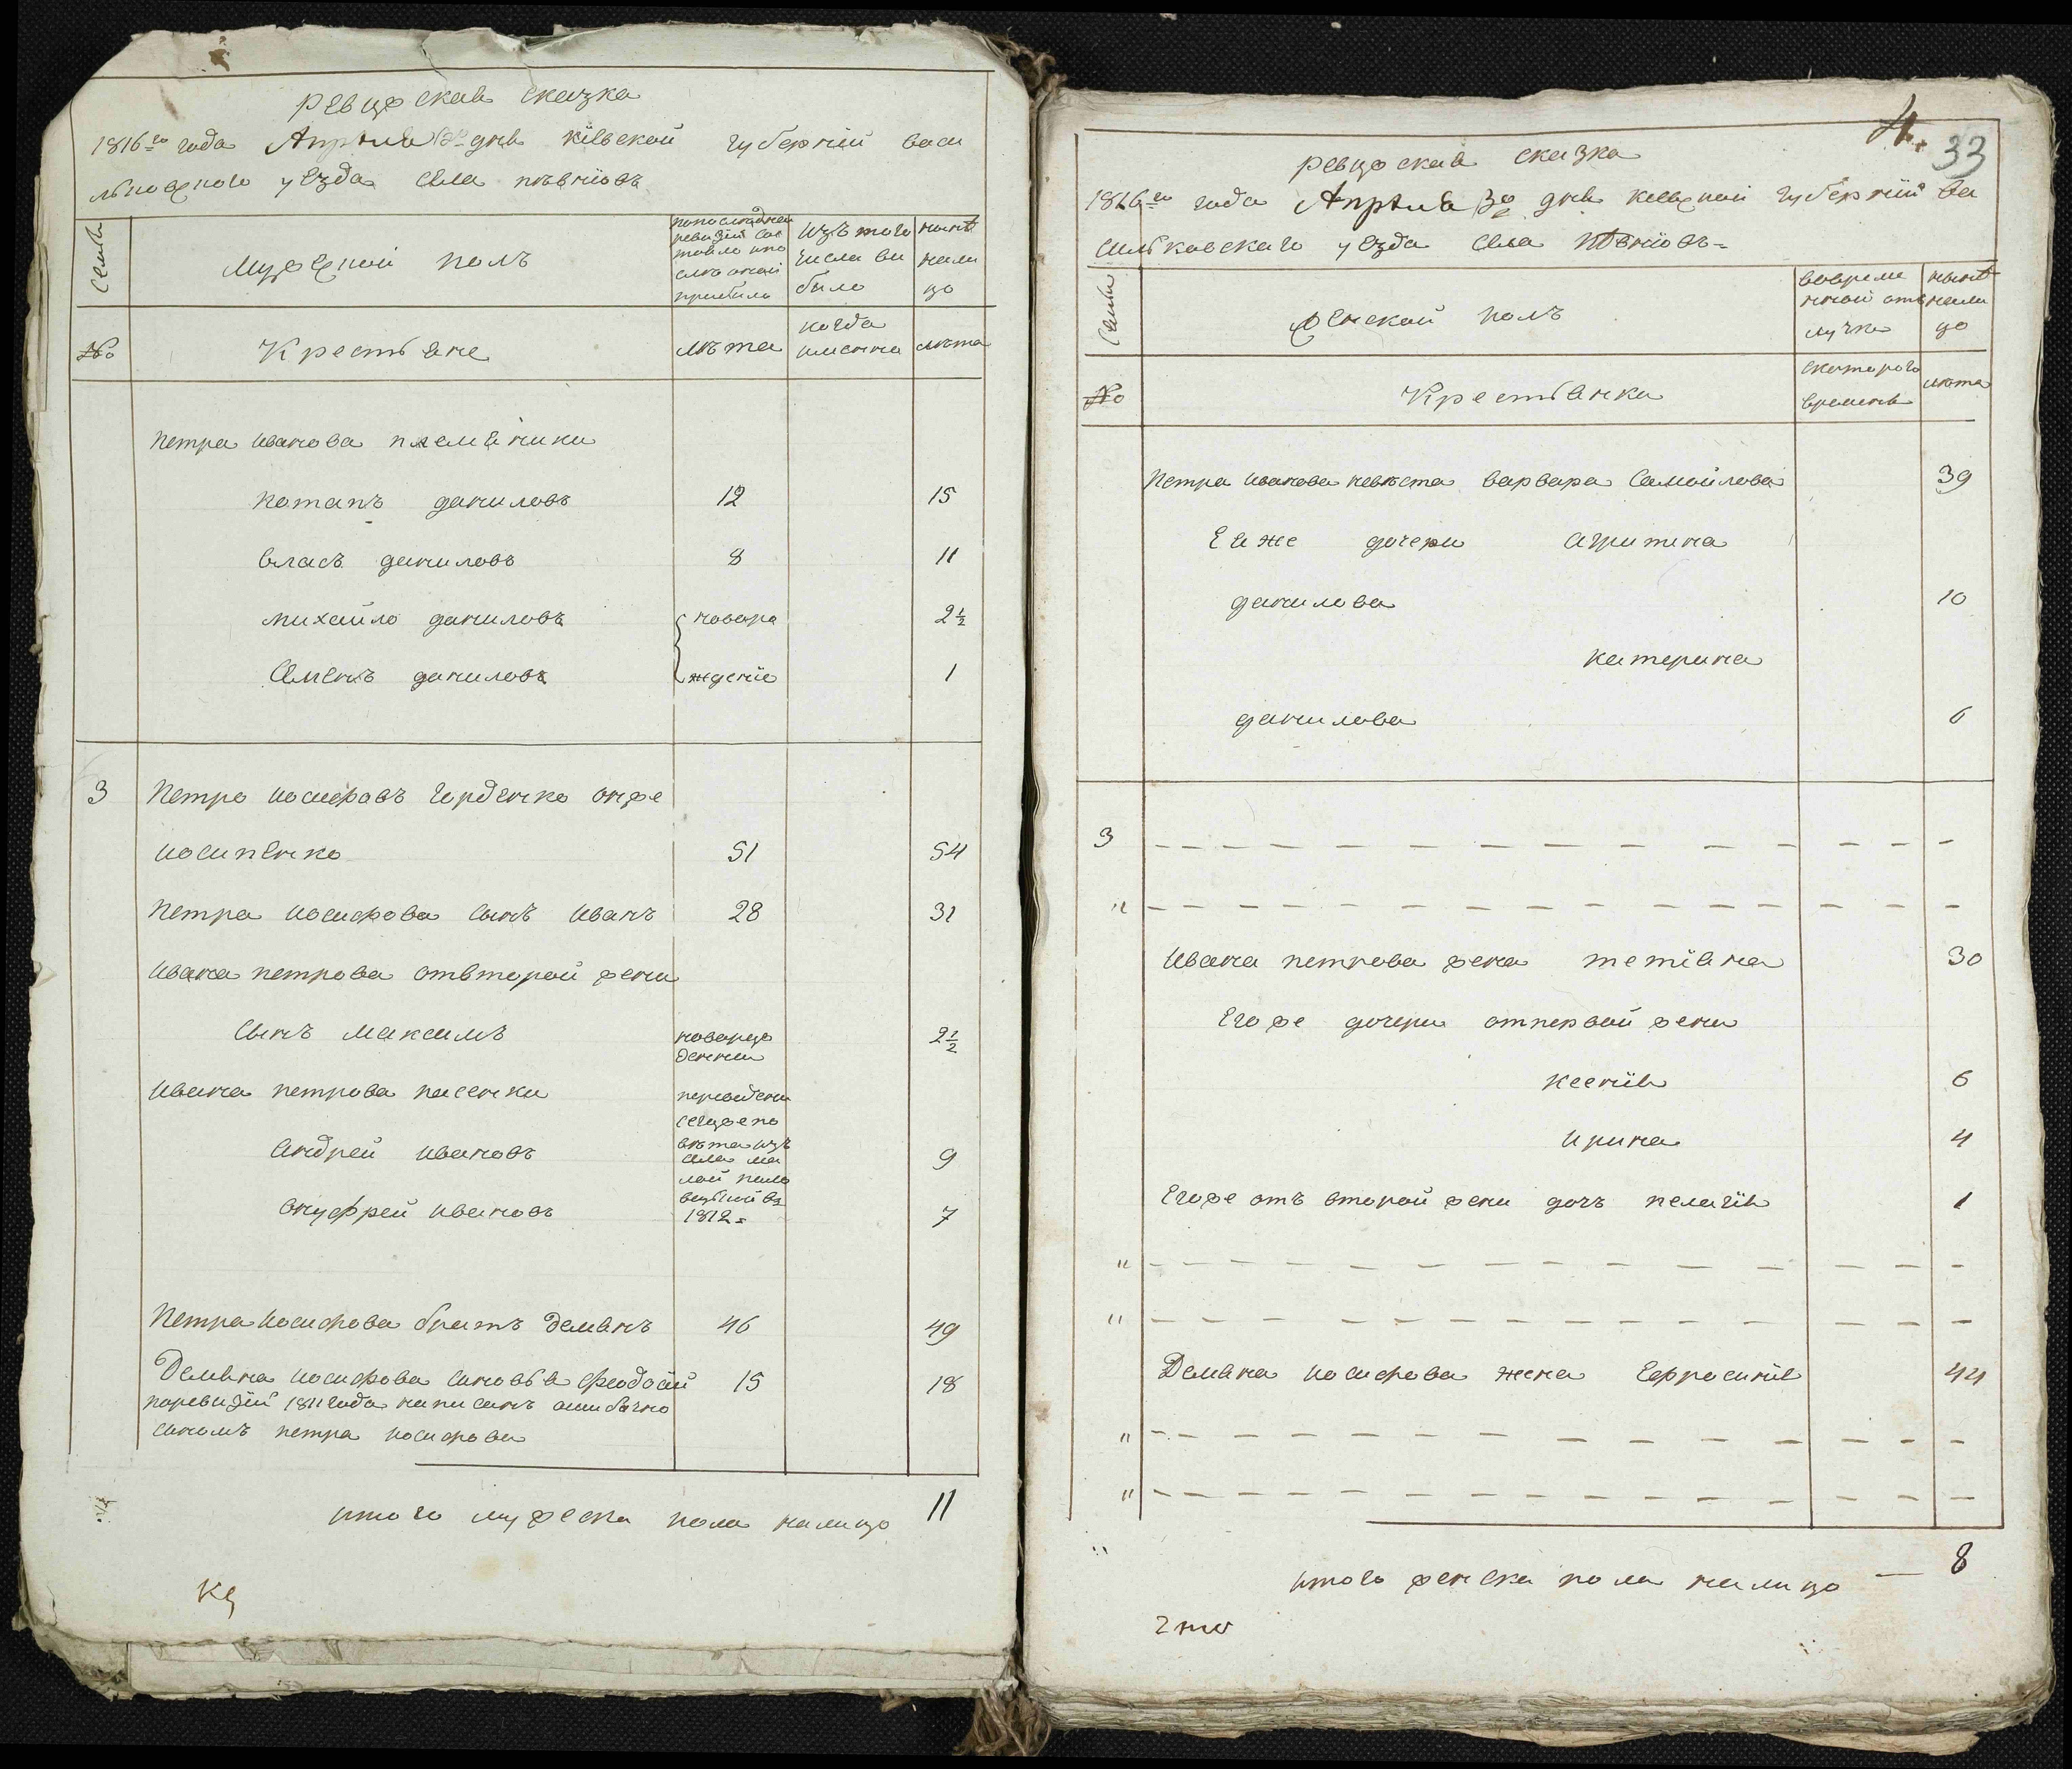 ревизская сказка
1816го года Апреля 30 дня киевской губернии васи
льковского уезда села пъвнювъ
Семьи
Мужеской полъ
попоследней
ревизии сос
тояло и по
сле оной
прибыло
изъ того
числа вы
было
ныне
нали
цо
№
Крестьяне
лъта
когда
именно
лъта
петра иванова племеники
потапъ даниловъ 12 15
власъ даниловъ 8 11
михайло даниловъ новоро 2½
Семенъ даниловъ ждение 1
3 петро иосифовъ горденко онже
иосипенко 51 54
петра иосифова сынъ иванъ 28 31
ивана петрова отвторой жены
сынъ максимъ новорож 2½
денни
ивана петрова пасенки переведени
сегоже по
андрей ивановъ вѣта изъ 9
села ма
лой поло
онуфрей ивановъ въ 7
1812=
петра иосифова братъ демянъ 46 49
Демяна иосифова сыновья феодосий 15 18
поревизии 1811 года написанъ ошибачно
сыномъ петра иосифова
итого мужеска пола налицо 11
4. 33
ревизская сказка
1816го года Апреля 30 дня киевской губернии ва
сильковскаго уезда села пѣвнювъ=
Семьи
женской полъ
вовреме
нной отъ
лучке
ныне
нали
цо
№
Крестьянки
скоторого
времени
лѣта
петра иванова невѣста варвара Самойлова 39
Еи же дочери агрипина
данилова 10
катерина
данилова 6
3
"
ивана петрова жена тетіяна 30
Его же дочери отпервой жены
ксения 6
ирина 4
Егоже отъ второй жены дочъ пелагия 1
"
"
Демяна иосифова жена Ефросиния 44
"
"
итого женска пола налицо — 8
что